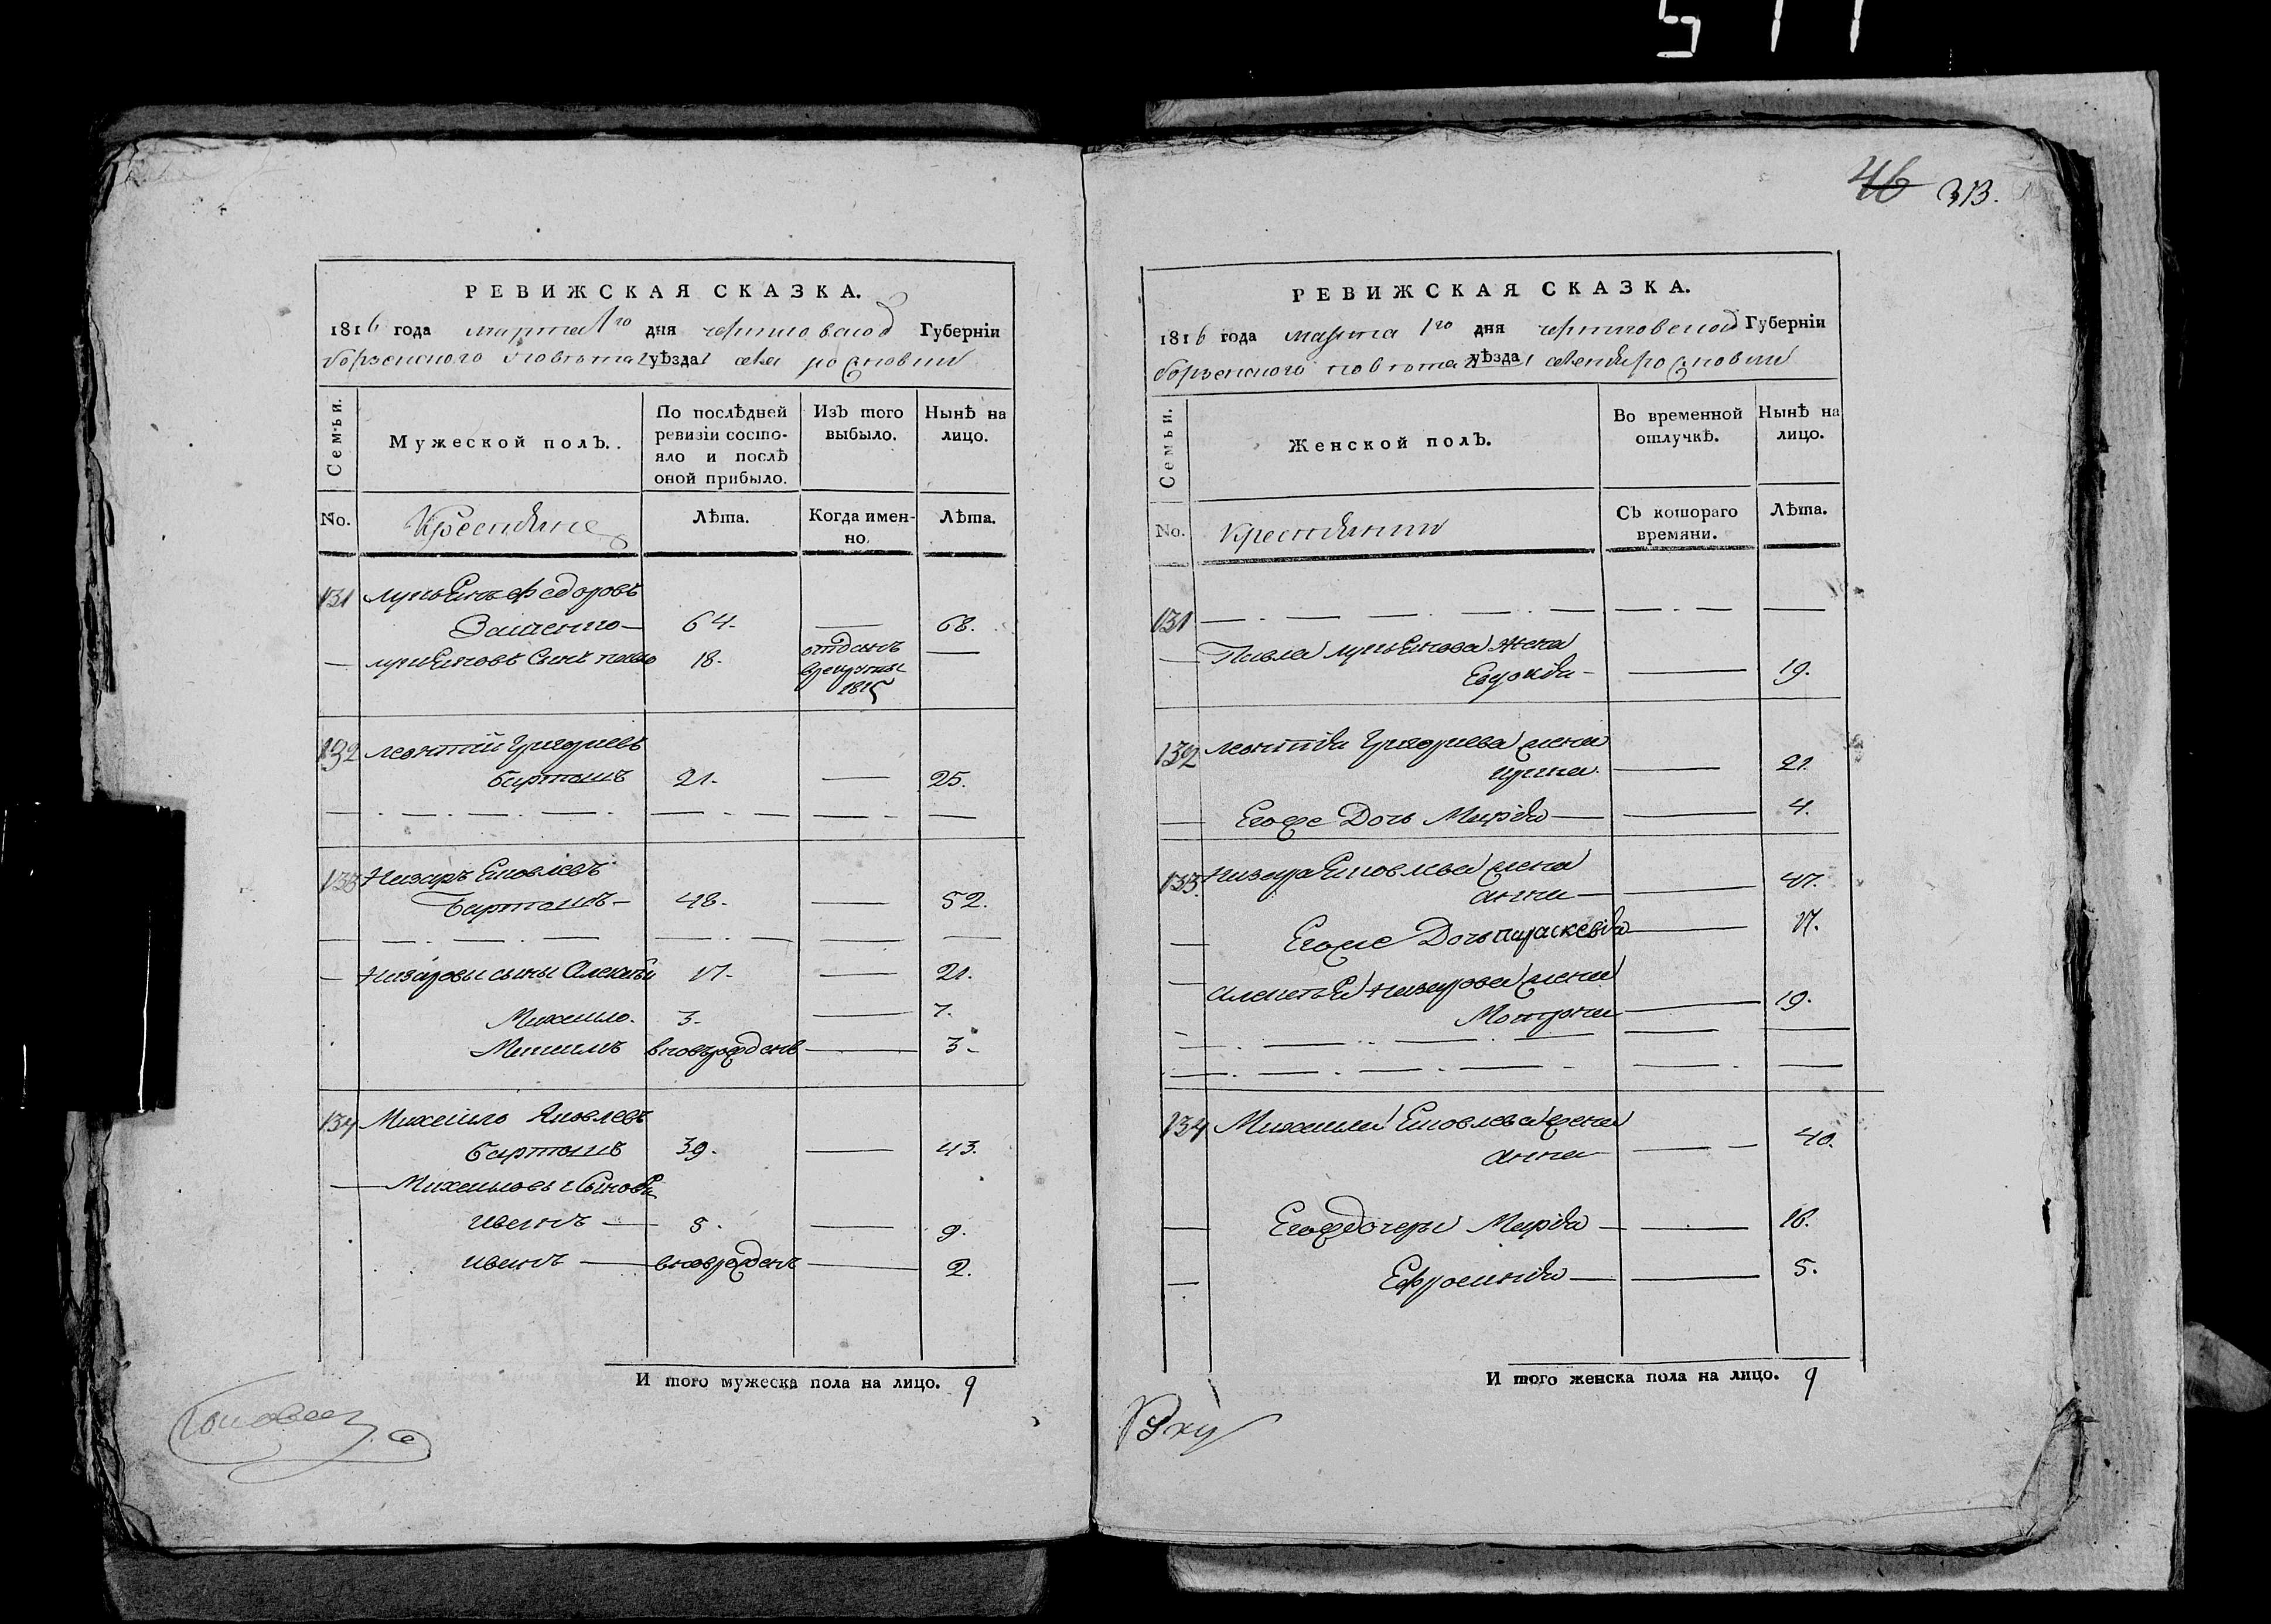 511
46 313.
РЕВИЖСКАЯ СКАЗКА.
1816 года марта 1го дня черниговской Губерніи
борзенского повѣта уѣзда села
Семьи.
Мужеской полЪ.
По послѣдней ревизіи состояло и послѣ оной прибыло.
ИзЪ того выбыло.
Нынѣ на лицо.
No.
Крестьяне
Лѣта.
Когда именно.
Лѣта.
131 лукьянъ федоровъ
64. — 68.
— лукьяновъ сынъ павло 18. отданъ —
врекруты
1815
132 леонтий григориевъ
барташъ 21. — 25.
133 Назаръ Яковлевъ
Барташъ — 48. — 52.
— Назаровы сыны Алексѣй 17. — 21.
Михайло. 3. — 7.
вновьрожденъ — 3 —
134 Михайло Яковлевъ
барташъ 39. — 43.
— Михайловы Сыновья
иванъ — 5. — 9.
иванъ — вновьрожденъ — 2.
И того мужеска пола на лицо. 9
РЕВИЖСКАЯ СКАЗКА.
1816 года марта 1го дня черниговской Губерніи
борзенского повѣта уѣзда
Семьи.
Женской полЪ.
Во временной отлучкѣ.
Нынѣ на лицо.
No.
Крестьянки
СЪ котораго времяни.
Лѣта.
131
— Павла лукьянова жена
— 19.
132 леонтия григориева жена
ирина — 21.
— Егоже Дочь Марья — 4.
133 Назара Яковлева жена
анна — 47.
— Егоже Дочь параскевія — 17.
— алексѣя Назарова жена
Мотрона — 19.
134 Михайла Яковлева жена
анна — 40.
— Егождочеры Марья — 16.
— Ефросинія — 5.
И того женска пола на лицо. 9
Руку